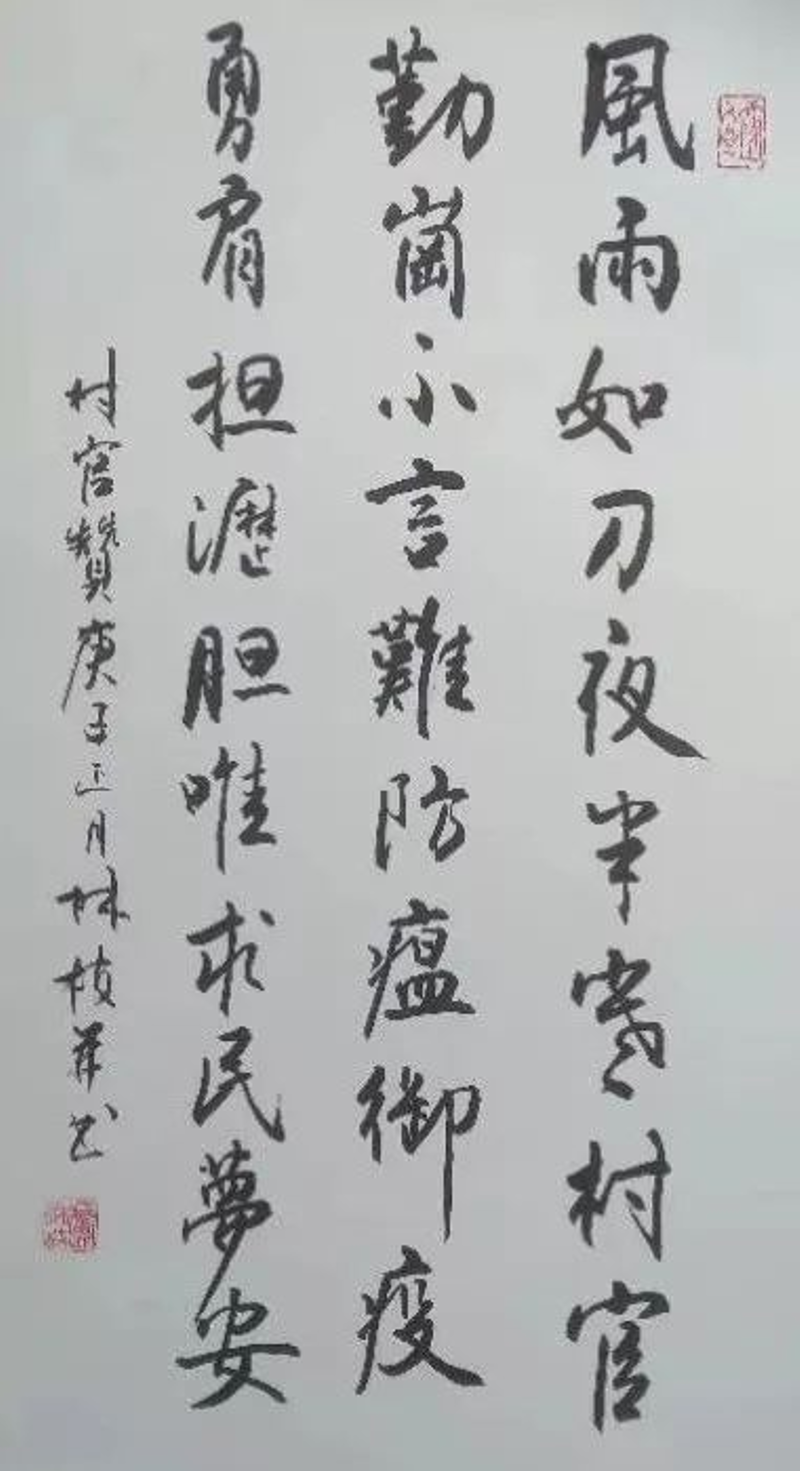 風雨如刀夜半寒村官
勤崗不言難防瘟御疫
勇肩担瀝胆唯求民夢安
村官贊庚子正月林枝並书